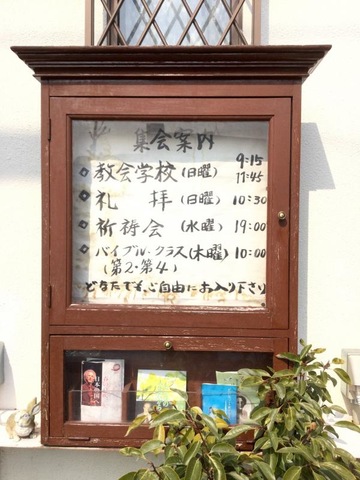 集会案内
教会学校(日曜) 9:15
11:45
礼拝(日曜) 10:30
祈祷会(水曜) 19:00
バイブル・クラス(木曜) 10:00
(第2・第4)
どなたでも、ご自由にお入り下さい